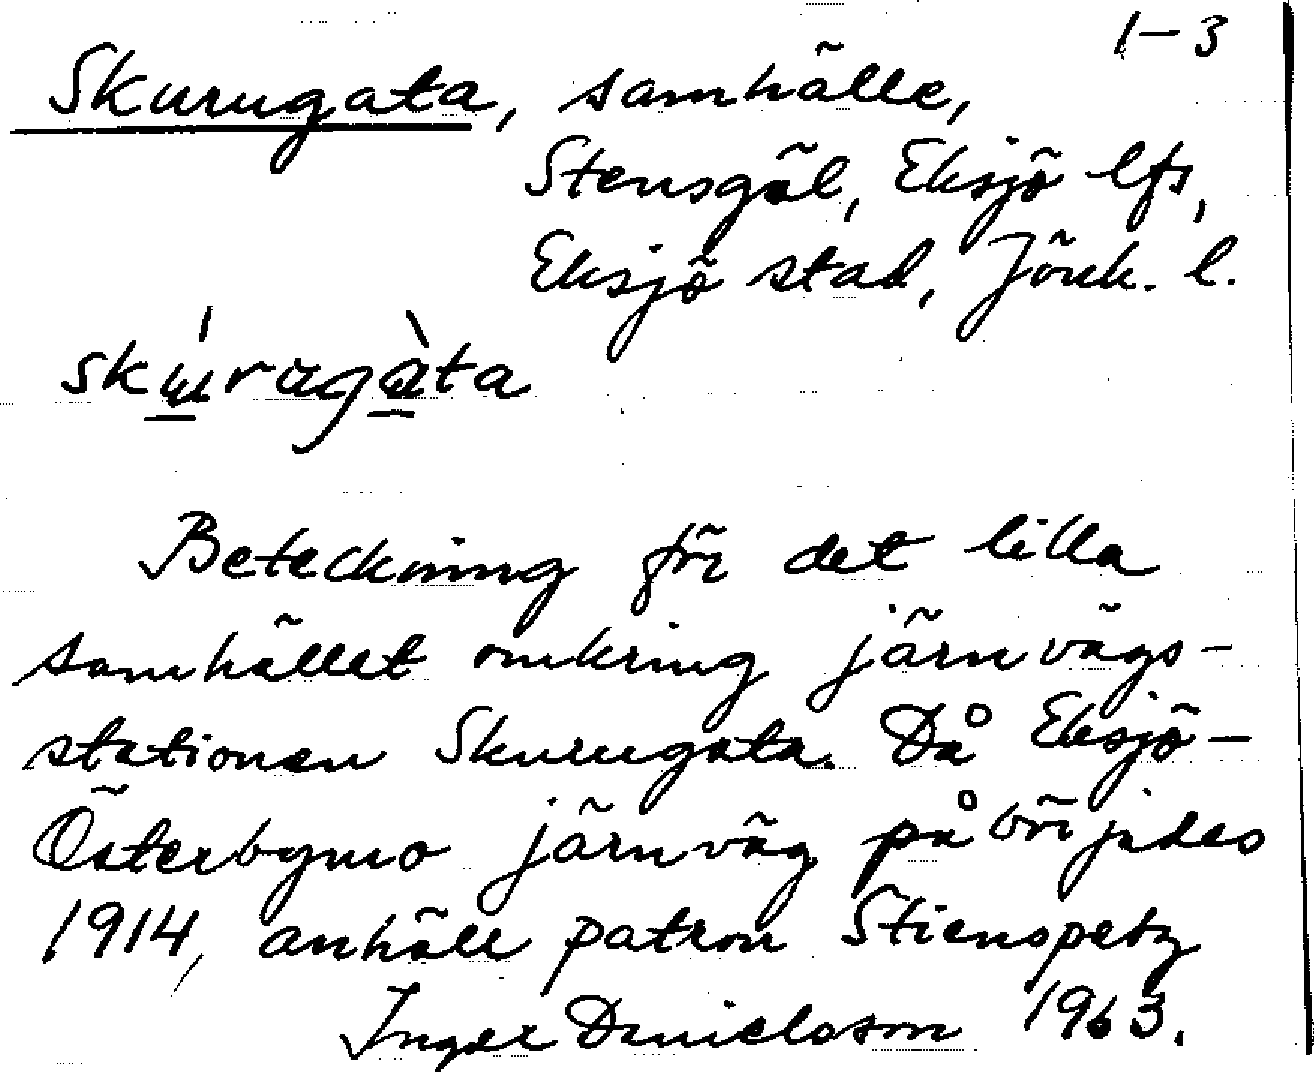 1-3
Skurugata, samhälle,
Stensgöl, Eksjö lfs,
Eksjö stad, Jönk. l.
skúrugàta
Beteckning för det lilla
samhället omkring järnvägs-
stationen Skurugata. Då Eksjö-
Österbymo järnväg påbörjades
1914, anhöll patron Stienspetz
Inger Danielsson 1963.